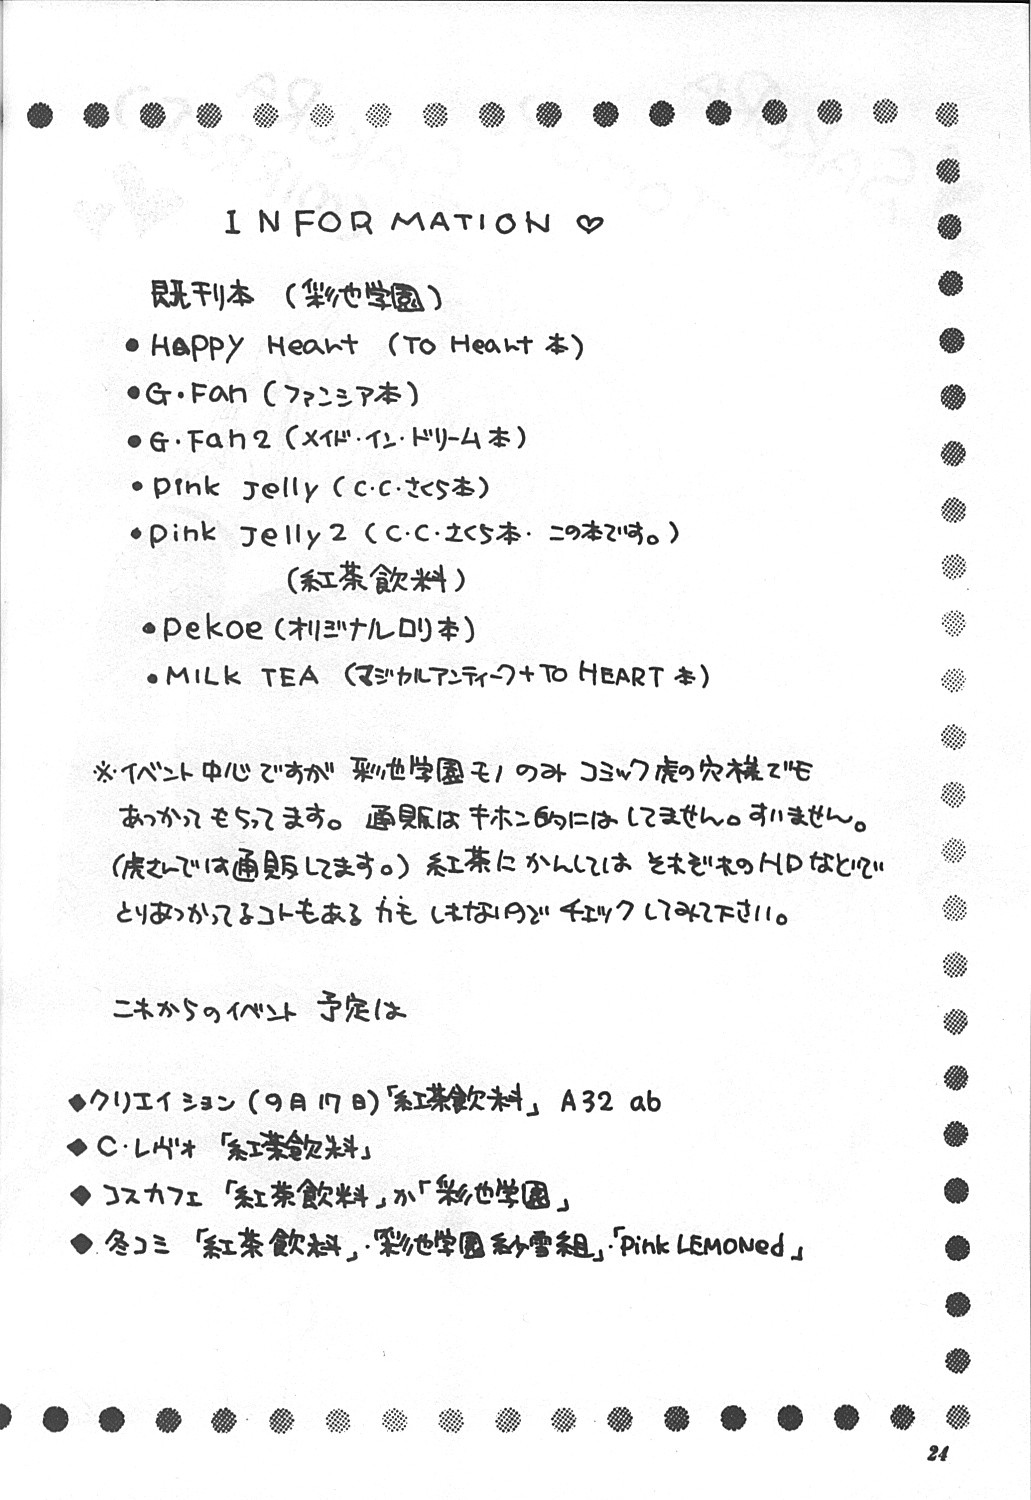 INFORMATION ♡
既刊本 (彩池学園)
● HAPPY Heart (TO Heart 本)
● G・Fan (ファンシア本)
● G・Fan2 (メイド・イン・ドリーム本)
● Pink Jelly (C・C・さくら本)
● Pink Jelly2 (C・C・さくら本・この本です。)
(紅茶飲料)
● Pekoe (オリジナルロリ本)
● MILK TEA (マジカルアンティーク+TO HEART 本)
※イベント中心ですが 彩池学園モノのみ コミック虎の穴様でも
あつかってもらってます。通販はキホン的にはしてません。すいません。
(虎さんでは通販してます。) 紅茶にかんしては それぞれのHDなどで
とりあつかってるコトもあるかも しれないのでチェックしてみて下さい。
これからのイベント 予定は
◆クリエイション (9月17日)「紅茶飲料」 A32 ab
◆ C・レヴォ 「紅茶飲料」
◆ コスカフェ 「紅茶飲料」か「彩池学園」
◆ 冬コミ 「紅茶飲料」・「彩池学園 紗雪組」・「Pink LEMONed」
24